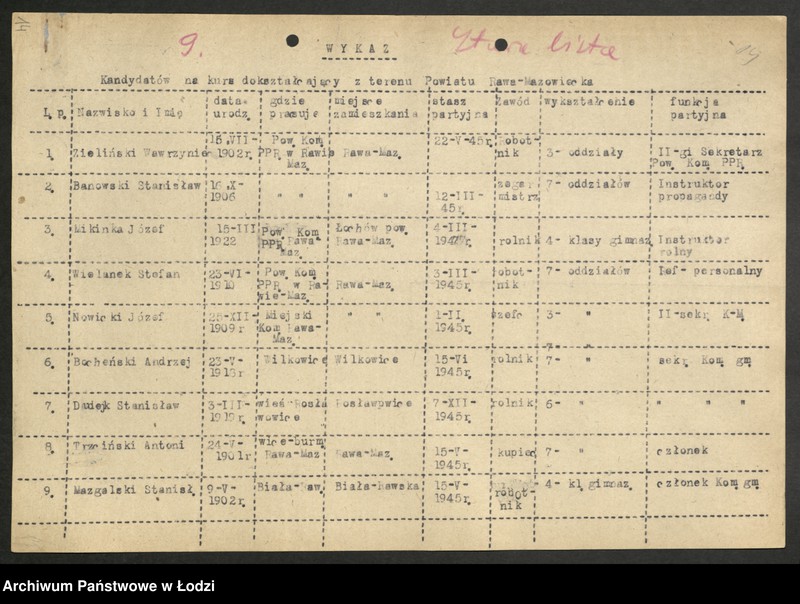 9.
WYKAZ
Kandydatów na kurs dokształcający z terenu Powiatu Rawa-Mazowiecka
L.p. Nazwisko i Imię data urodz. gdzie pracuje miejsce zamieszkania stasz partyjna zawód wykształcenie funkcja partyjna
1. Zieliński Wawrzyniec 15.VII-1902r. Pow.Kom PPR w Rawie Maz. Rawa-Maz. 22-V-45r. Robotnik 3- oddziały II-gi Sekretarz Pow.Kom PPR
2. Banowski Stanisław 16.X-1906 " " " " 12-III-45r. zegarmistrz 7- oddziałów Instruktor propagandy
3. Mikinka Józef 15-III 1922 Pow.Kom PPR Rawa Maz. Łochów pow. Rawa-Maz. 4-III- rolnik 4- klasy gimnaz. Instruktor rolny
4. Wielanek Stefan 23-VI-1910 Pow.Kom PPR w Rawie-Maz. Rawa-Maz. 3-III-1945r. robotnik 7- oddziałów Ref- personalny
5. Nowicki Józef 25-XII-1909r Miejski Kom.Rawa-Maz. " " 1-II.1945r. szofe 3- " II-sekr. K-M.
6. Bocheński Andrzej 23-V-1918r Wilkowice Wilkowice 15-Vi 1945r. rolnik 7- " sekr. Kom.gm.
7. Dudejk Stanisław 3-III-1919r. wieś-Rosławowice Rosławpwice 7-XII-1945r. rolnik 6- " " " "
8. Trzciński Antoni 24-V-1901r wice-burm. Rawa-Maz. Rawa-Maz. 15-V-1945r. kupiec 7- " członek
9. Mazgalski Stanisł. 9-V-1902r. Biała-Raw. Biała-Rawska 15-V-1945r. robotnik 4- kl.gimnaz. członek Kom.gm.
Archiwum Państwowe w Łodzi